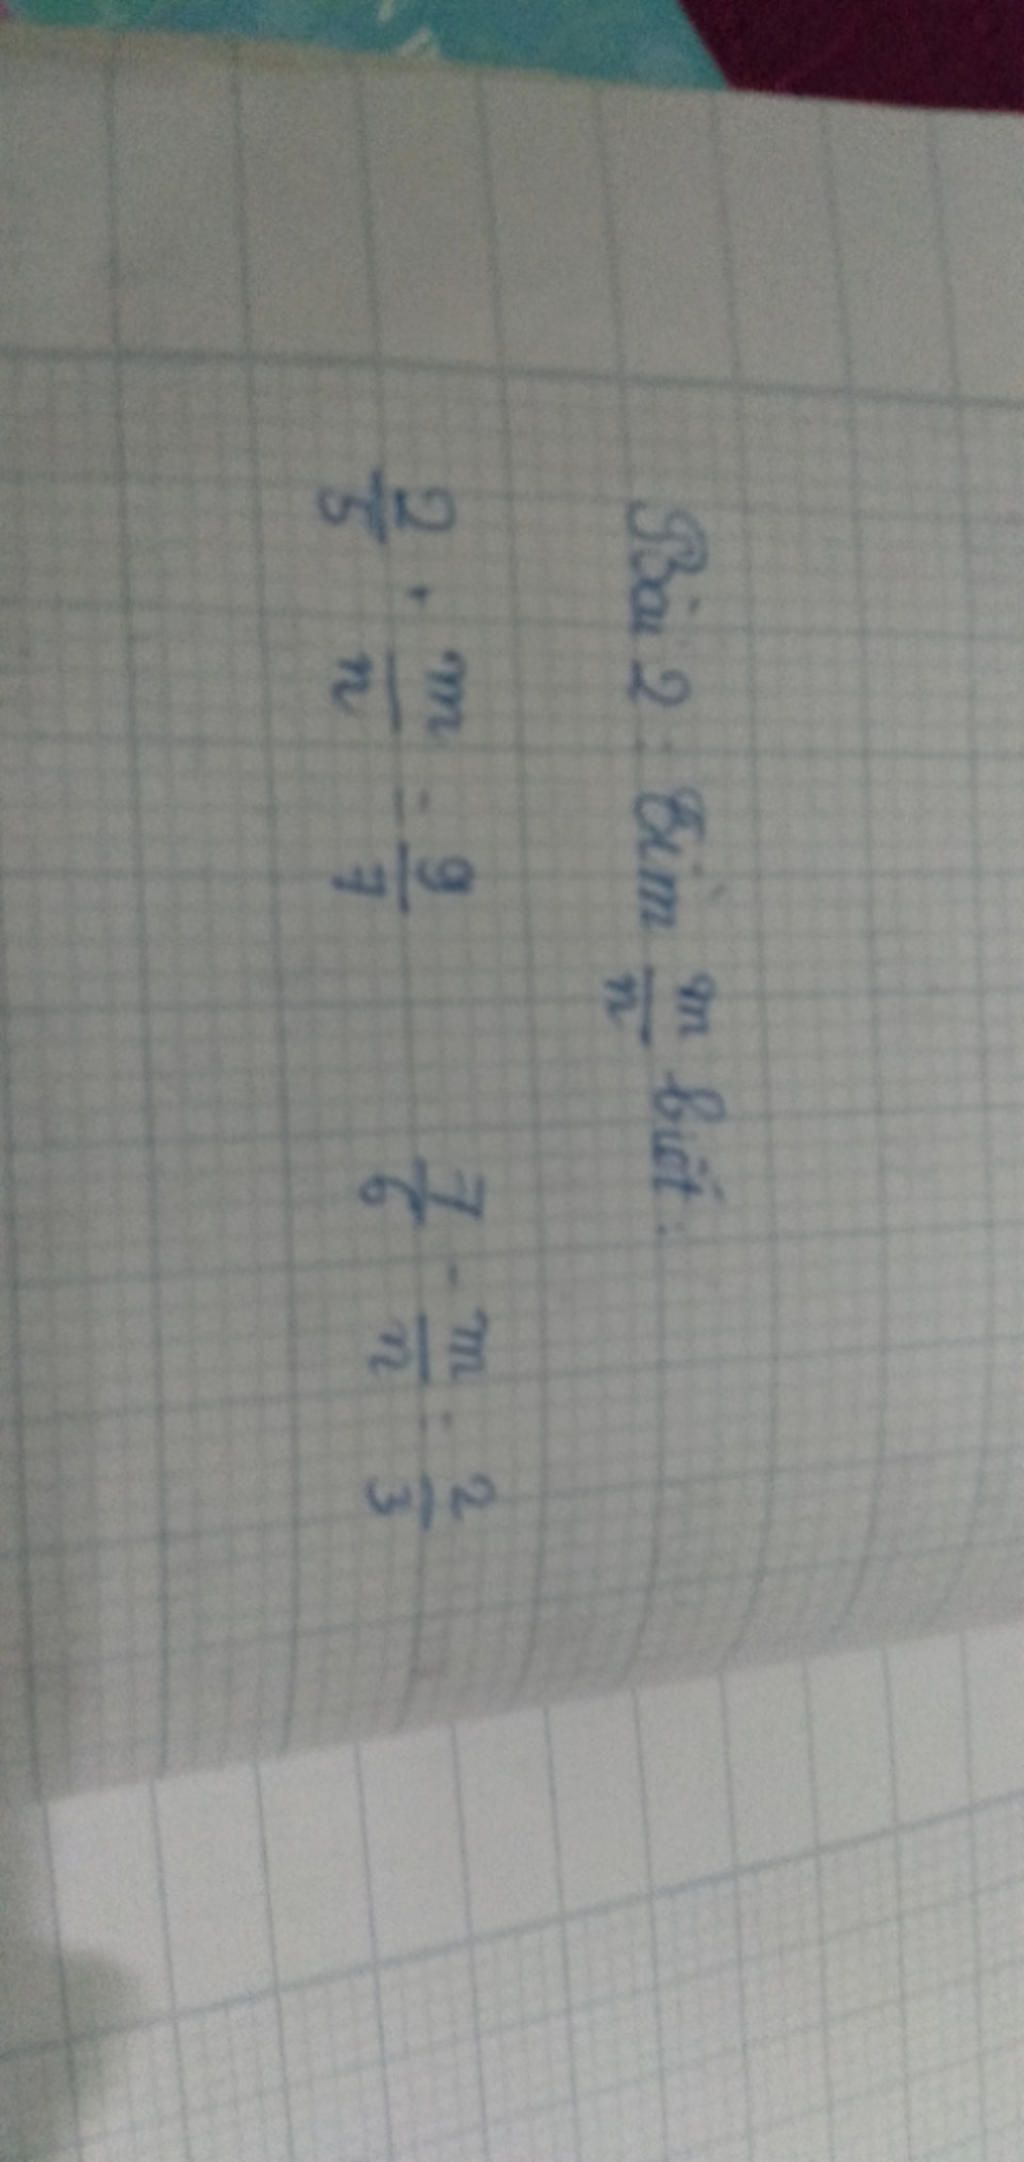 Bài 2 : Tìm m/n biết :
2/5 + m/n = 9/7 7/6 - m/n = 2/3